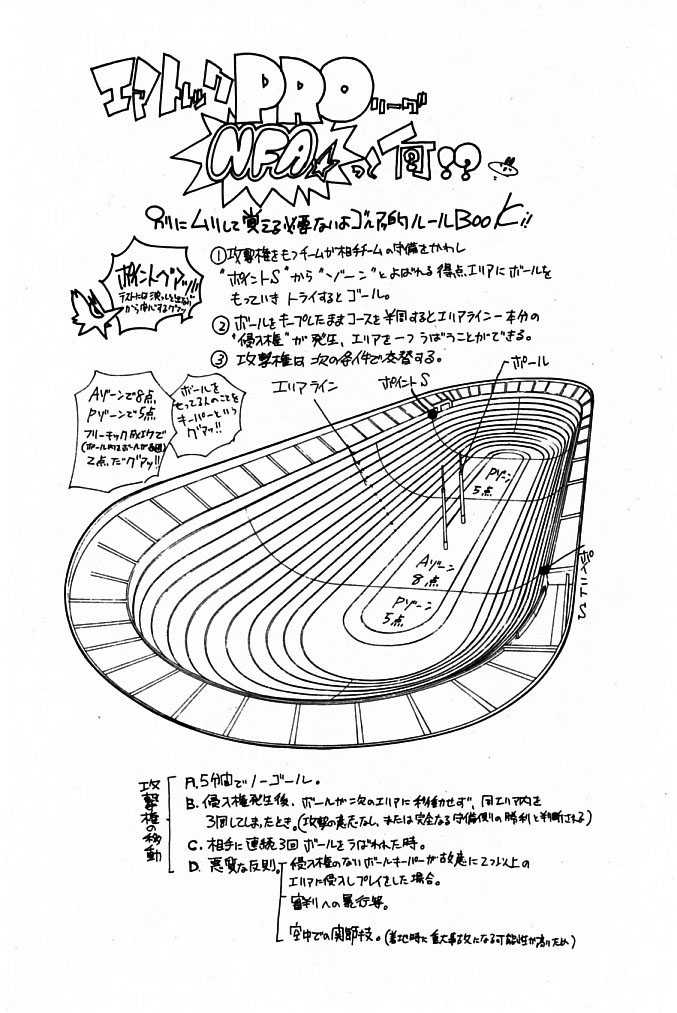 エア・トレックPROリーグ
NFA☆って何!?
別にムリして覚える必要ないよ ルールBook!!
ポイントゲアッ!!
①攻撃権をもつチームが相手チームの守備をかわし
"ポイントS"から"ゾーン"とよばれる得点エリアにボールを
もっていきトライするとゴール。
②ボールをキープしたままコースを半周するとエリアライン一本分の
"侵入権"が発生、エリアを一つうばうことができる。
③攻撃権は次の条件で交替する。
Aゾーンで8点
Pゾーンで5点
2点だグアッ!!
ボールを
もってる人のことを
キーパーという
グアッ!!
エリアライン
ポイントS
ポール
Pゾーン
5点
Aゾーン
8点
Pゾーン
5点
ポイントS
攻撃権の移動
A.5分間でノーゴール。
B.侵入権発生後、ボールが次のエリアに移動せず、同エリア内を
3回してしまったとき。(攻撃の意志なし、または完全なる守備側の勝利と判断される)
C.相手に連続3回ボールをうばわれた時。
D.悪質な反則。侵入権のないボールキーパーが故意に2つ以上の
エリアに侵入しプレイをした場合。
審判への暴行等。
空中での関節技。(着地時に重大事故になる可能性が高いため)